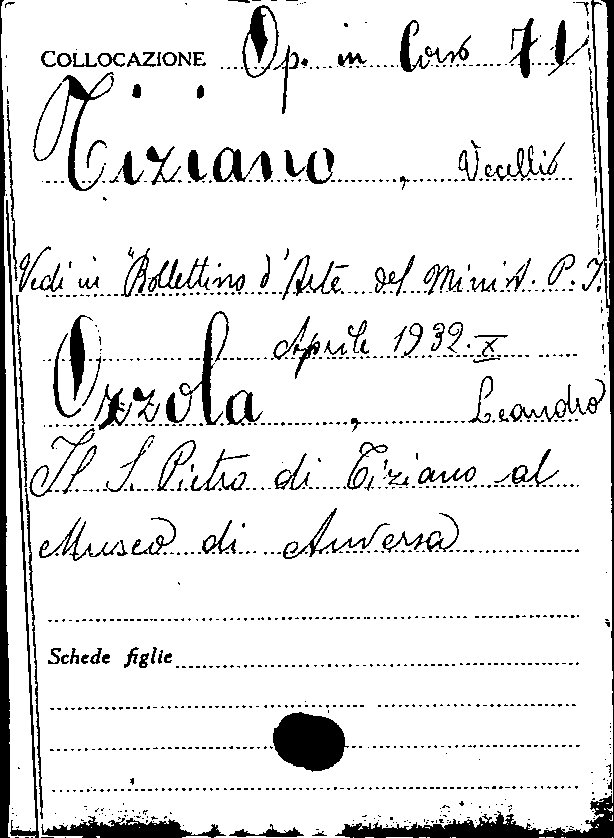 COLLOCAZIONE Op. in Corso 71
Tiziano, Vecellio
Vedi in "Bollettino d'Arte del Minist. P. I.
Aprile 1932. X
Ozzola, Leandro
Il S. Pietro di Tiziano al
Museo di Anversa
Schede figlie